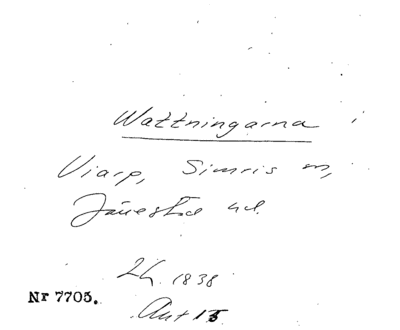 Wattningarna
Viarp, Simris m,
Järrestad hd.
2h. 1838
Nr 7705.
Akt 15